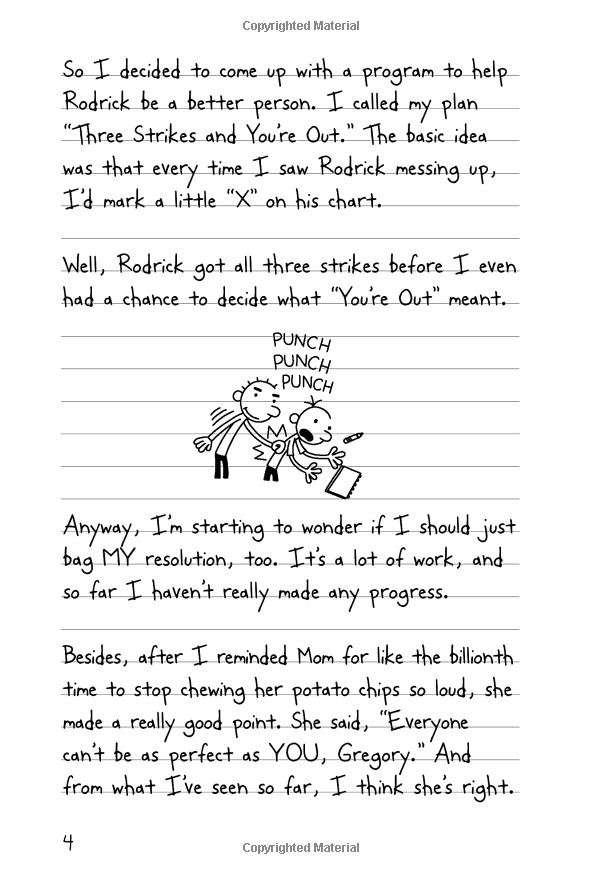 Copyrighted Material
So I decided to come up with a program to help
Rodrick be a better person. I called my plan
"Three Strikes and You're Out." The basic idea
was that every time I saw Rodrick messing up,
I'd mark a little "X" on his chart.
Well, Rodrick got all three strikes before I even
had a chance to decide what "You're Out" meant.
PUNCH
PUNCH
PUNCH
Anyway, I'm starting to wonder if I should just
bag MY resolution, too. It's a lot of work, and
so far I haven't really made any progress.
Besides, after I reminded Mom for like the billionth
time to stop chewing her potato chips so loud, she
made a really good point. She said, "Everyone
can't be as perfect as YOU, Gregory." And
from what I've seen so far, I think she's right.
4
Copyrighted Material